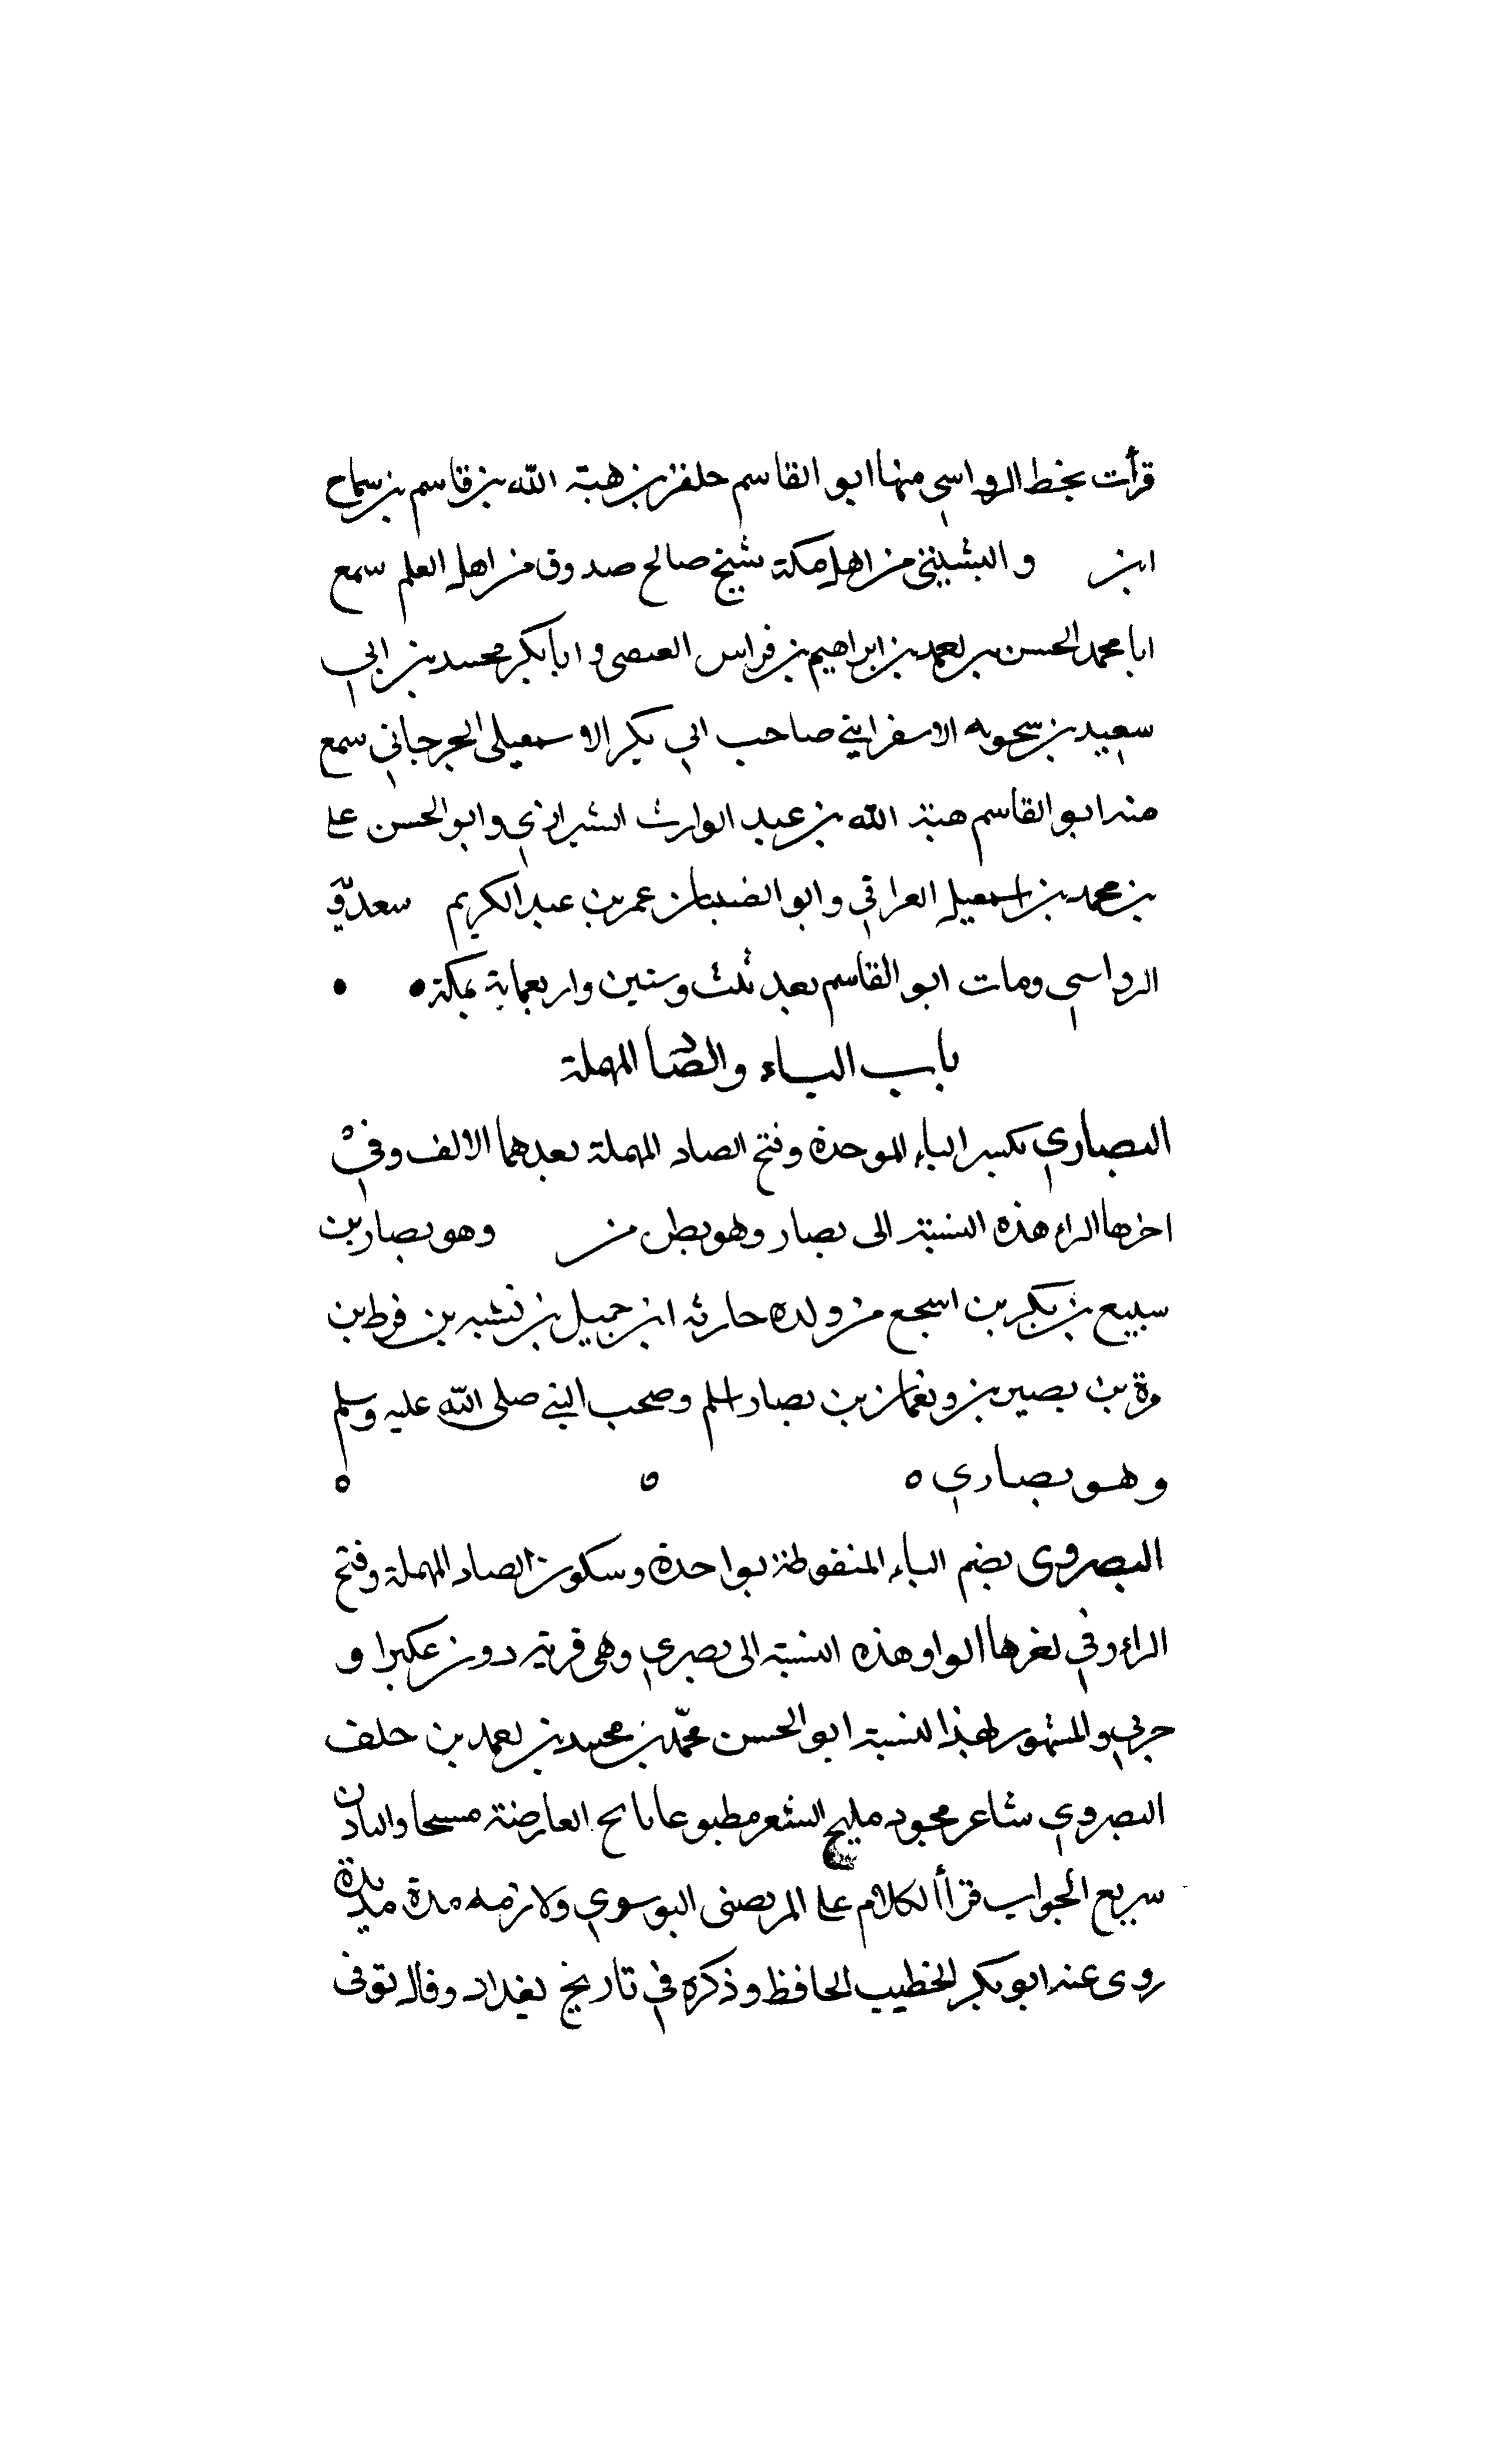 قرأت بخط الرواسي منها ابو القاسم خلف بن هبة الله بن قاسم بن سماح
ابن و البشيتي من اهل مكة شيخ صالح صدوق من اهل العلم سمع
ابا محمد الحسن بن احمد بن ابراهيم بن فراس العبقسي و ابا بكر محمد بن ابي
سعيد بن سحويه الاسفرايني صاحب ابي بكر الاسمعيلي الجرجاني سمع
منه ابو القاسم هبة الله بن عبد الوارث الشيرازي وابو الحسن علي
بن محمد بن اسمعيل العراقي وابو الفتيان عمر بن عبد الكريم سعدويه
الرواسي ومات ابو القاسم بعد ثلث وستين واربعماية بمكة
باب الباء والصاد المهملة
البصاري بكسر الباء الموحدة وفتح الصاد المهملة بعدهما الالف وفي
اخرها الراء هذه النسبة الى بصار وهو بطن من وهو بصار بن
سبيع بن بكر بن اشجع من ولده حارثه ابن جميل بن نشبه بن قرط بن
مرة بن نصر بن دهمان بن بصار اسلم وصحب النبي صلى الله عليه وسلم
وهو بصاري
البصروي بضم الباء المنقوطة بواحدة وسكون الصاد المهملة وفتح
الراء وفي اخرها الواو هذه النسبة الى بصرى وهي قرية دون عكبرا و
حربي والمشهور بهذا النسبة ابو الحسن محمد بن محمد بن احمد بن خلف
البصروي شاعر مجود مليح الشعر مطبوعا العارضة
سريع الجواب قرأ الكلام على المرتضى الموسوي ولازمه مدة مديدة
روى عنه ابو بكر الخطيب الحافظ وذكره في تاريخ بغداد وقال توفي